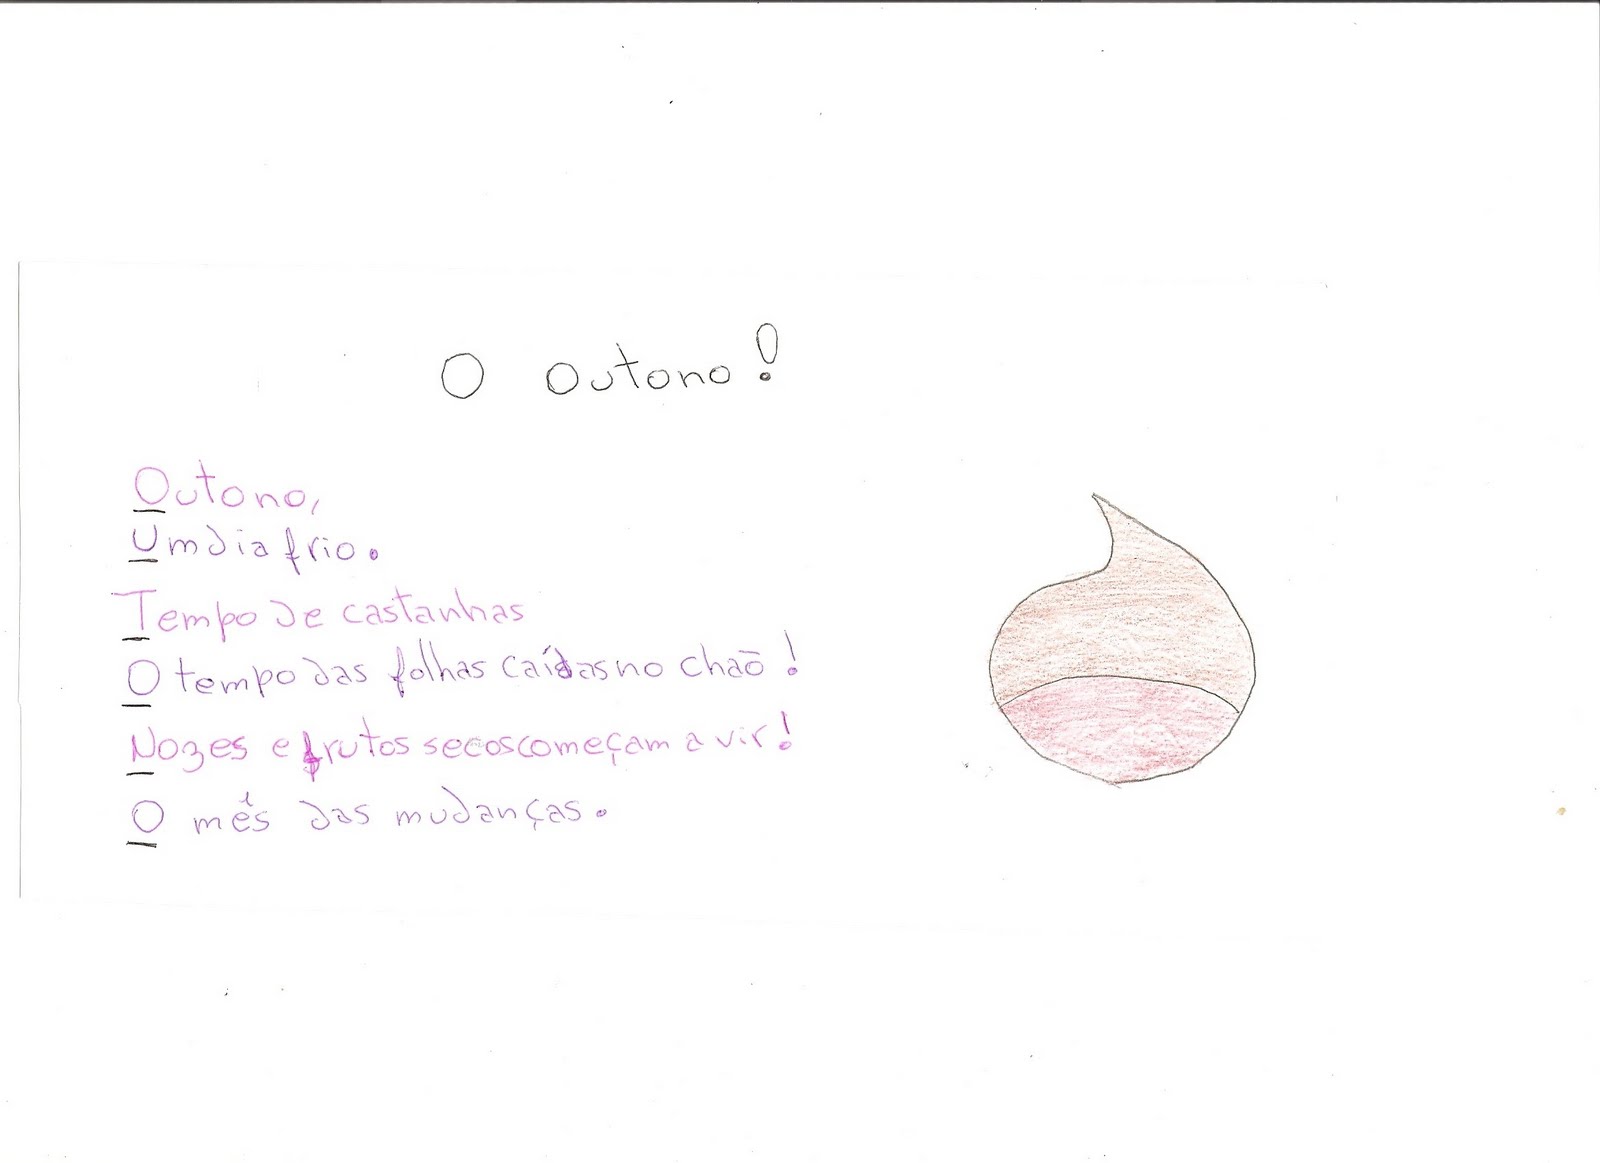 O Outono!
Outono,
Um dia frio.
Tempo de castanhas
O tempo das folhas caídas no chaõ!
Nozes e frutos secos começam a vir!
O mês das mudanças.